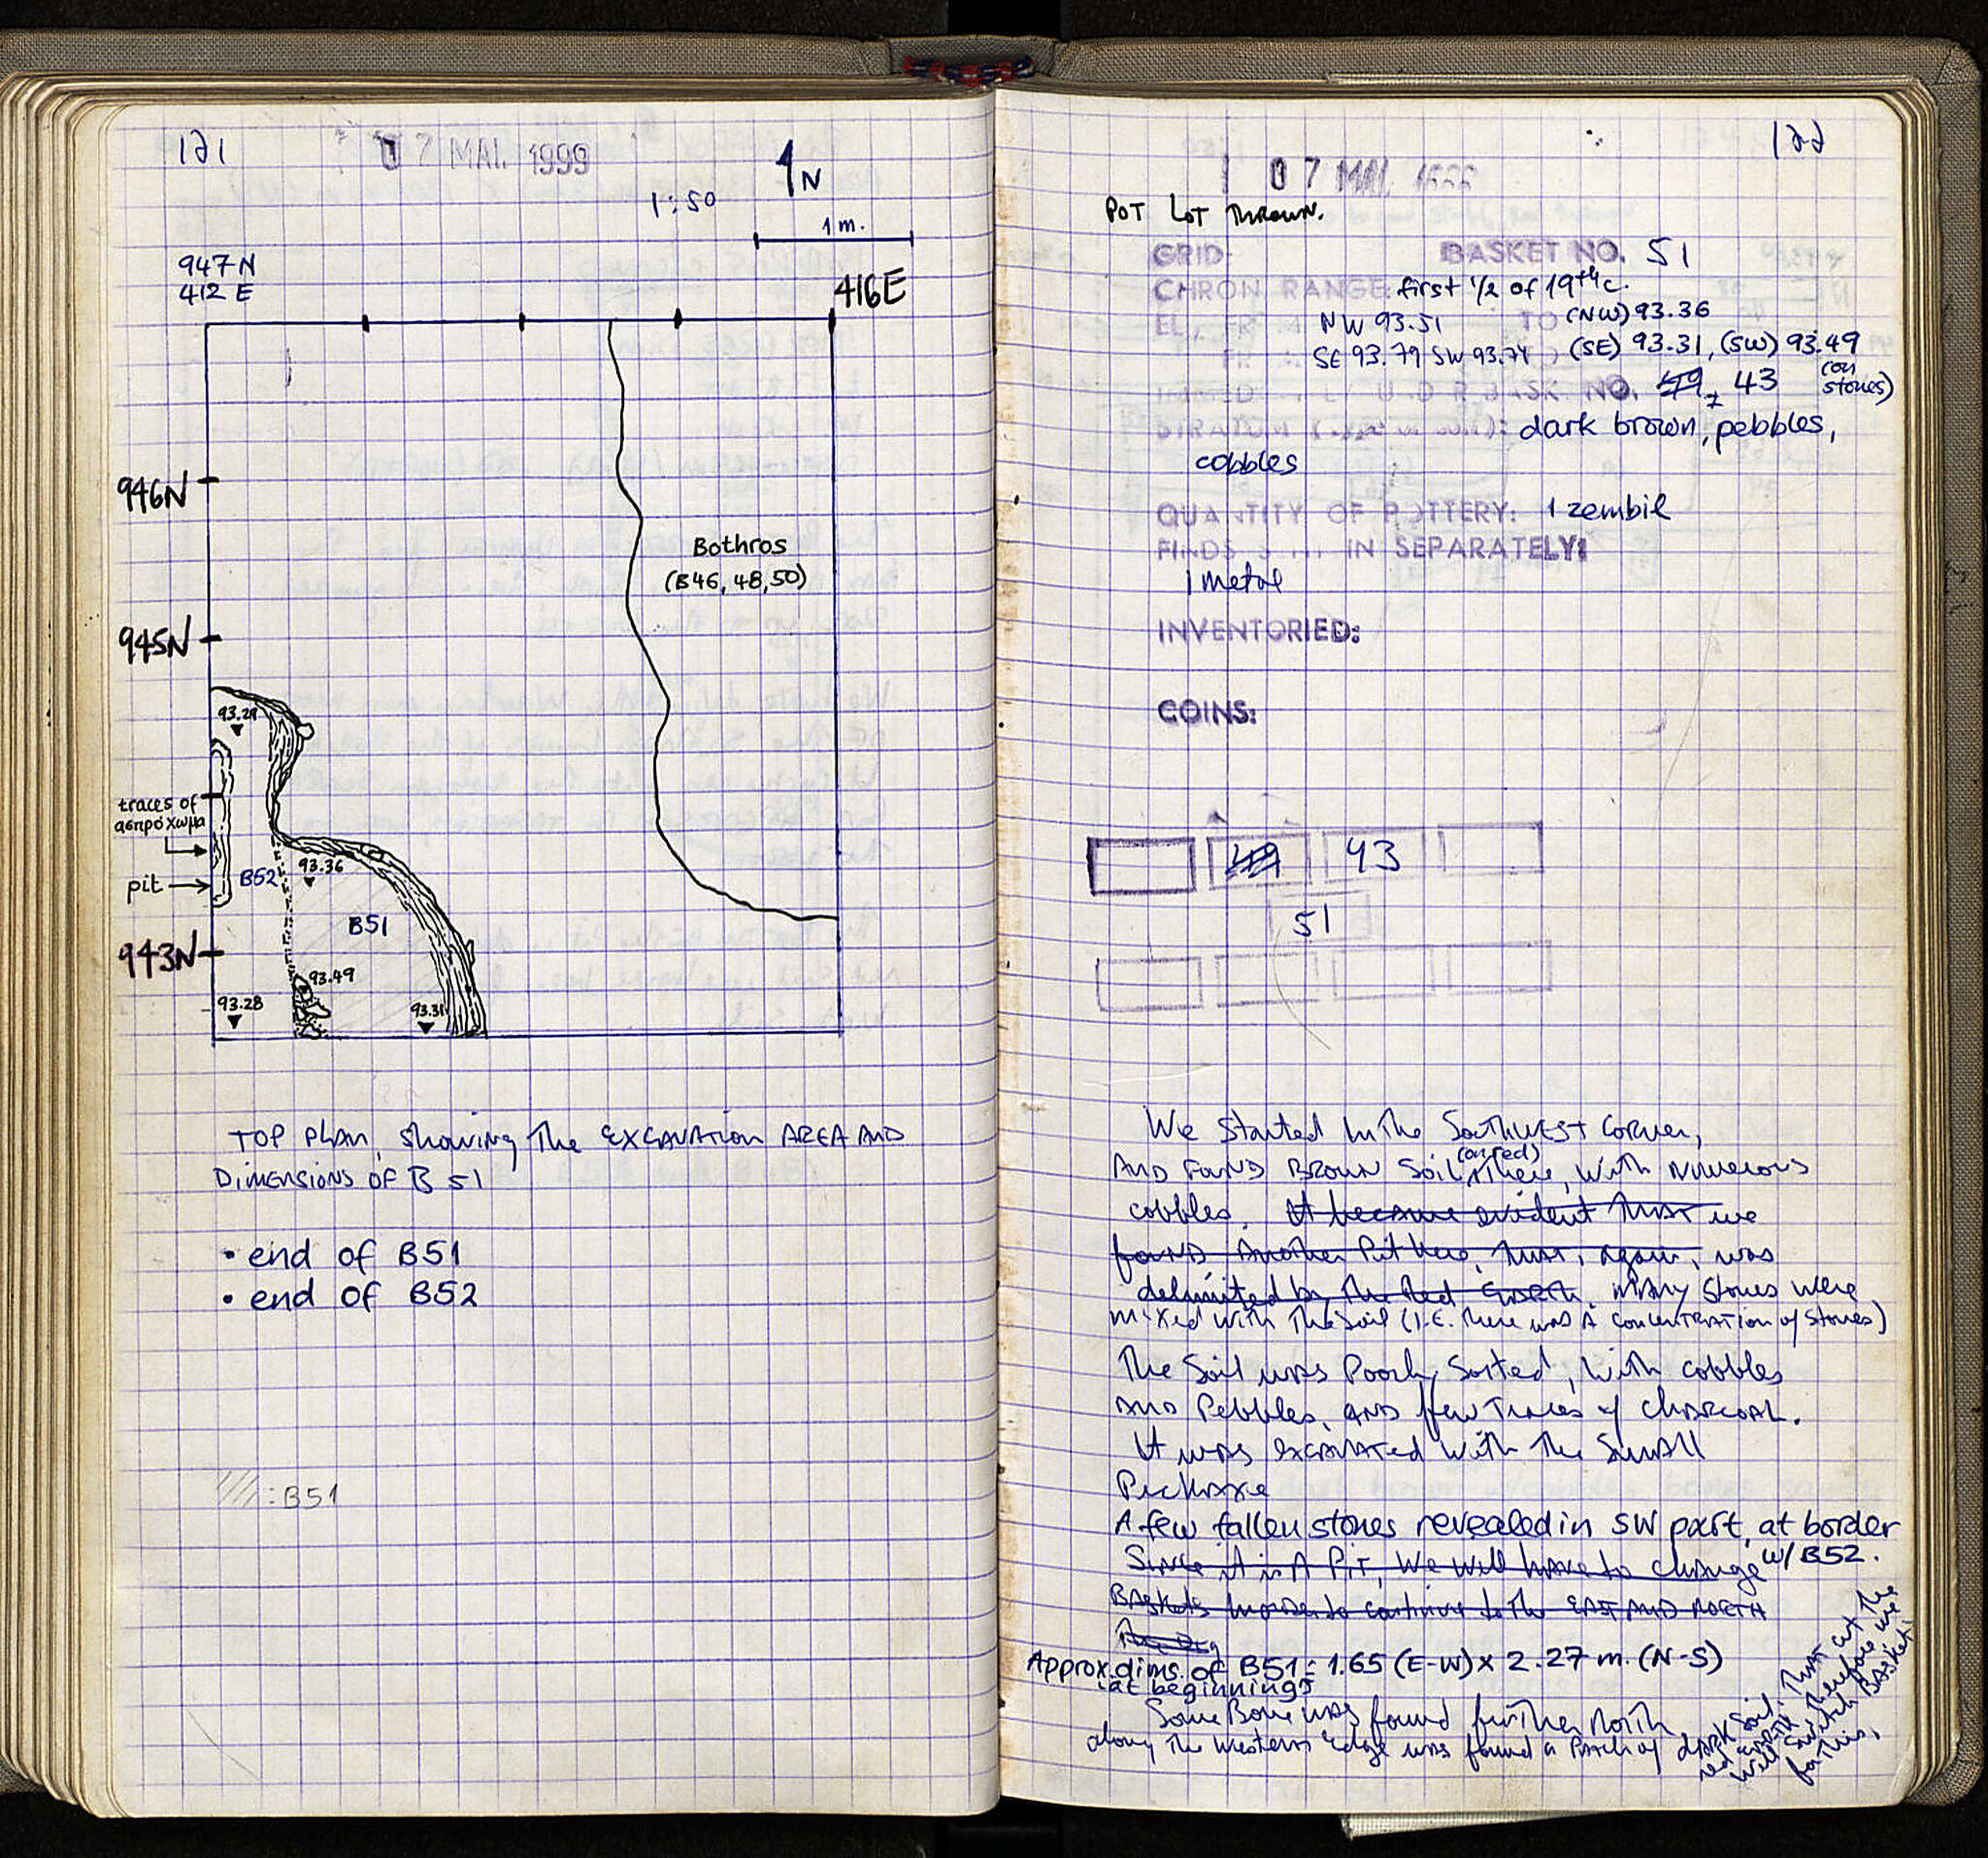 121
07 MAI. 1999
N
1:50
1 m.
947 N
412 E
416E
946N
Bothros
(B46, 48, 50)
945N
93.29
traces of
ασπρόχωμα
pit
B52
93.36
B51
943N
93.49
93.28
93.31
TOP PLAN, showing The EXCAVATION AREA AND
Dimensions of B 51
• end of B51
• end of B52
: B51
122
07 MAI
POT LOT THROWN.
GRID BASKET NO. 51
CHRON RANGE: first 1/2 of 19th c.
NW 93.51 TO (NW) 93.36
SE 93.79 SW 93.74 (SE) 93.31, (SW) 93.49
(on
stones)
NO. 49, 43
dark brown, pebbles,
cobbles
QUANTITY OF POTTERY: 1 zembil
FINDS IN SEPARATELY:
1 metal
INVENTORIED:
COINS:
49 43
51
We started In The Southwest Corner,
(on red)
AND FOUND BROWN Soil There, with Numerous
cobbles. It became evident that we
found Another Pit here, that, again, was
delimited by the Red Earth. Many Stones were
mixed with The Soil (I.E. there was A concentration of stones)
The Soil was Poorly Sorted, with cobbles
AND Pebbles, AND few Traces of CHARCOAL.
It was excavated with The Small
Pickaxe
A few fallen stones revealed in SW part, at border
w/ B52.
Since it is A Pit, We will have to change
Baskets In order to continue to The EAST AND NORTH
Approx. dims. of B51: 1.65 (E-W) x 2.27 m. (N-S)
(at beginning)
Some Bone was found further North
along The Western Edge was found a Patch of dark soil. Then at the
red earth. Therefore we
will switch Baskets
for This.